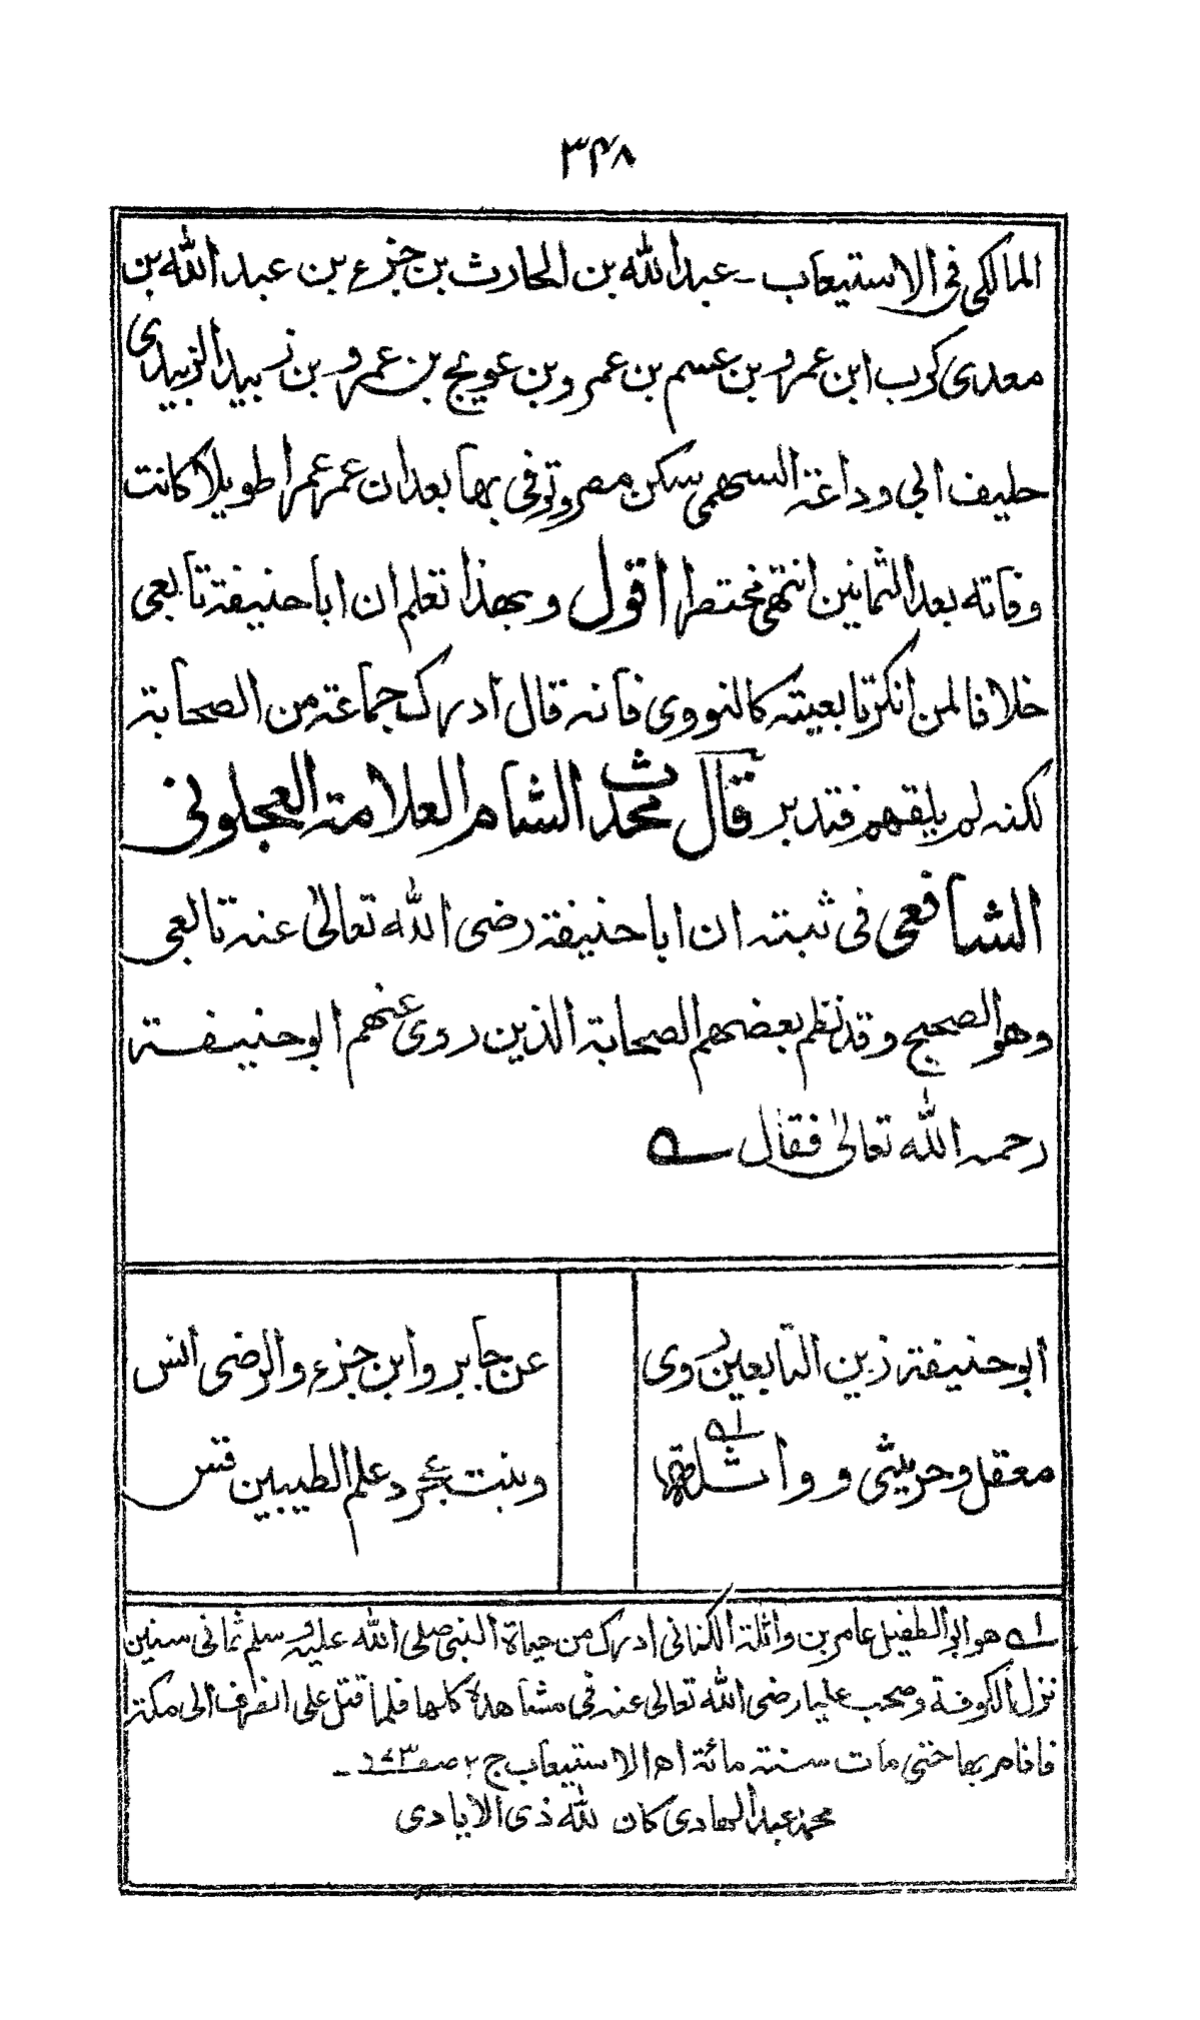 ۳۴۸
المالكی فی الاستیعاب ـ عبد الله بن الحارث بن جزء بن عبد الله بن
معدی کرب ابن عمرو بن عسم بن عمرو بن عویج بن عمرو بن زبید الزبیدی
حلیف ابی وداعة السهمی سکن مصر وتوفی بها بعد ان عمر عمرا طویلا کانت
وفاته بعد الثمانین انتهی مختصرا اقول وبهذا تعلم ان ابا حنیفة تابعی
خلافا لمن انکر تابعیته کالنووی فانه قال ادرک جماعة من الصحابة
لکنه لم یلقهم فتدبر قال محدث الشام العلامة العجلونی
الشافعی فی ثبته ان ابا حنیفة رضی الله تعالیٰ عنه تابعی
وهو الصحیح وقد نظم بعضهم الصحابة الذین روی عنهم ابو حنیفة
رحمه الله تعالیٰ فقال ؎
ابو حنیفة زین التابعین روی عن جابر وابن جزء والرضی انس
معقل وحریثی وواثلة لے وبنت عجرد علم الطیبین قس
لے هو ابو الطفیل عامر بن واثلة الکنانی ادرک من حیاة النبی صلی الله علیه وسلم ثمانی سنین
نزل الکوفة وصحب علیا رضی الله تعالی عنه فی مشاهده کلها فلما قتل علی انصرف الی مکة
فاقام بها حتی مات سنة مائة اھ الاستیعاب ج ۲ ـ
محمد عبد الهادی کان لله ذی الایادی